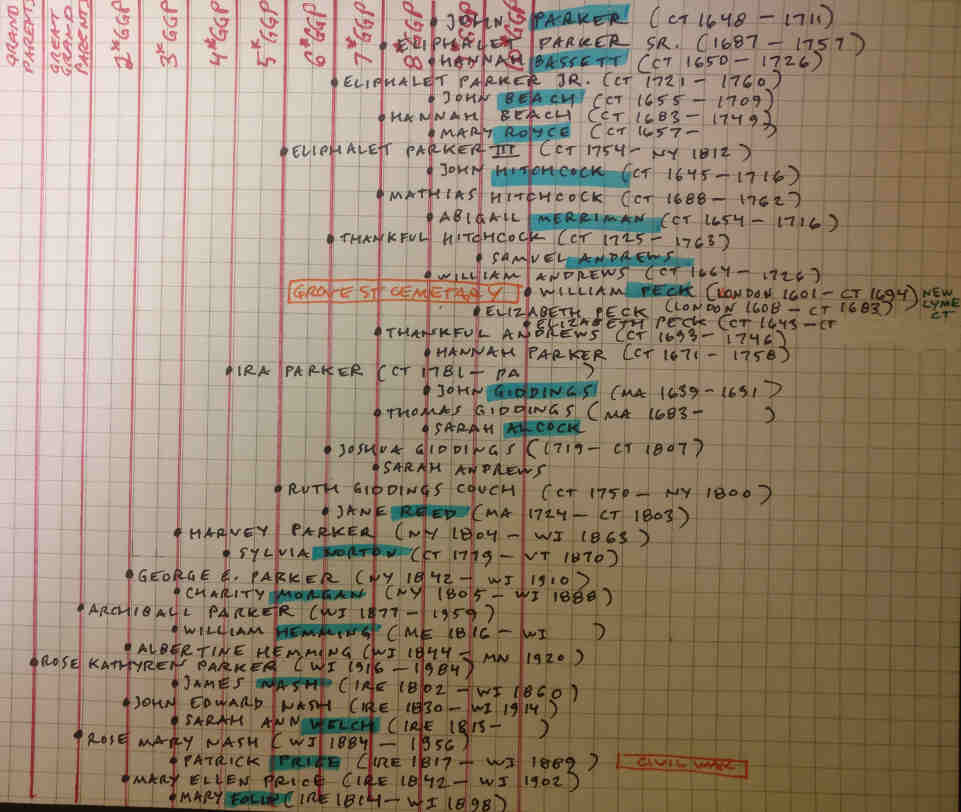 GRAND PARENTS
GREAT GRAND PARENTS
2*GGP
3*GGP
4*GGP
5*GGP
6*GGP
7*GGP
8*GGP
GGP
GGP
JOHN PARKER (CT 1648 - 1711)
ELIPHALET PARKER SR. (1687 - 1757)
HANNAH BASSETT (CT 1650 - 1726)
ELIPHALET PARKER JR. (CT 1721 - 1760)
JOHN BEACH (CT 1655 - 1709)
HANNAH BEACH (CT 1683 - 1749)
MARY ROYCE (CT 1657 - )
ELIPHALET PARKER III (CT 1754 - NY 1812)
JOHN HITCHCOCK (CT 1645 - 1716)
MATHIAS HITCHCOCK (CT 1688 - 1762)
ABIGAIL MERRIMAN (CT 1654 - 1716)
THANKFUL HITCHCOCK (CT 1725 - 1763)
SAMUEL ANDREWS
WILLIAM ANDREWS (CT 1664 - 1726)
GROVE ST CEMETARY
WILLIAM PECK (LONDON 1601 - CT 1694)
ELIZABETH PECK (LONDON 1608 - CT 1683)
NEW LYME CT
ELIZABETH PECK (CT 1643 - CT
THANKFUL ANDREWS (CT 1693 - 1746)
HANNAH PARKER (CT 1671 - 1758)
IRA PARKER (CT 1781 - PA )
JOHN GIDDINGS (MA 1639 - 1691)
THOMAS GIDDINGS (MA 1683 - )
SARAH ALCOCK
JOSHUA GIDDINGS (1719 - CT 1807)
SARAH ANDREWS
RUTH GIDDINGS COUCH (CT 1750 - NY 1800)
JANE REED (MA 1724 - CT 1803)
HARVEY PARKER (NY 1804 - WI 1863)
SYLVIA NORTON (CT 1779 - VT 1870)
GEORGE E. PARKER (NY 1842 - WI 1910)
CHARITY MORGAN (NY 1805 - WI 1888)
ARCHIBALL PARKER (WI 1877 - 1959)
WILLIAM HEMMING (ME 1816 - WI )
ALBERTINE HEMMING (WI 1844 - MN 1920)
ROSE KATHYREN PARKER (WI 1916 - 1984)
JAMES NASH (IRE 1802 - WI 1860)
JOHN EDWARD NASH (IRE 1830 - WI 1914)
SARAH ANN WELCH (IRE 1813 - )
ROSE MARY NASH (WI 1884 - 1956)
PATRICK PRICE (IRE 1817 - WI 1889)
CIVIL WAR
MARY ELLEN PRICE (IRE 1842 - WI 1902)
MARY (IRE 1814 - WI 1898)